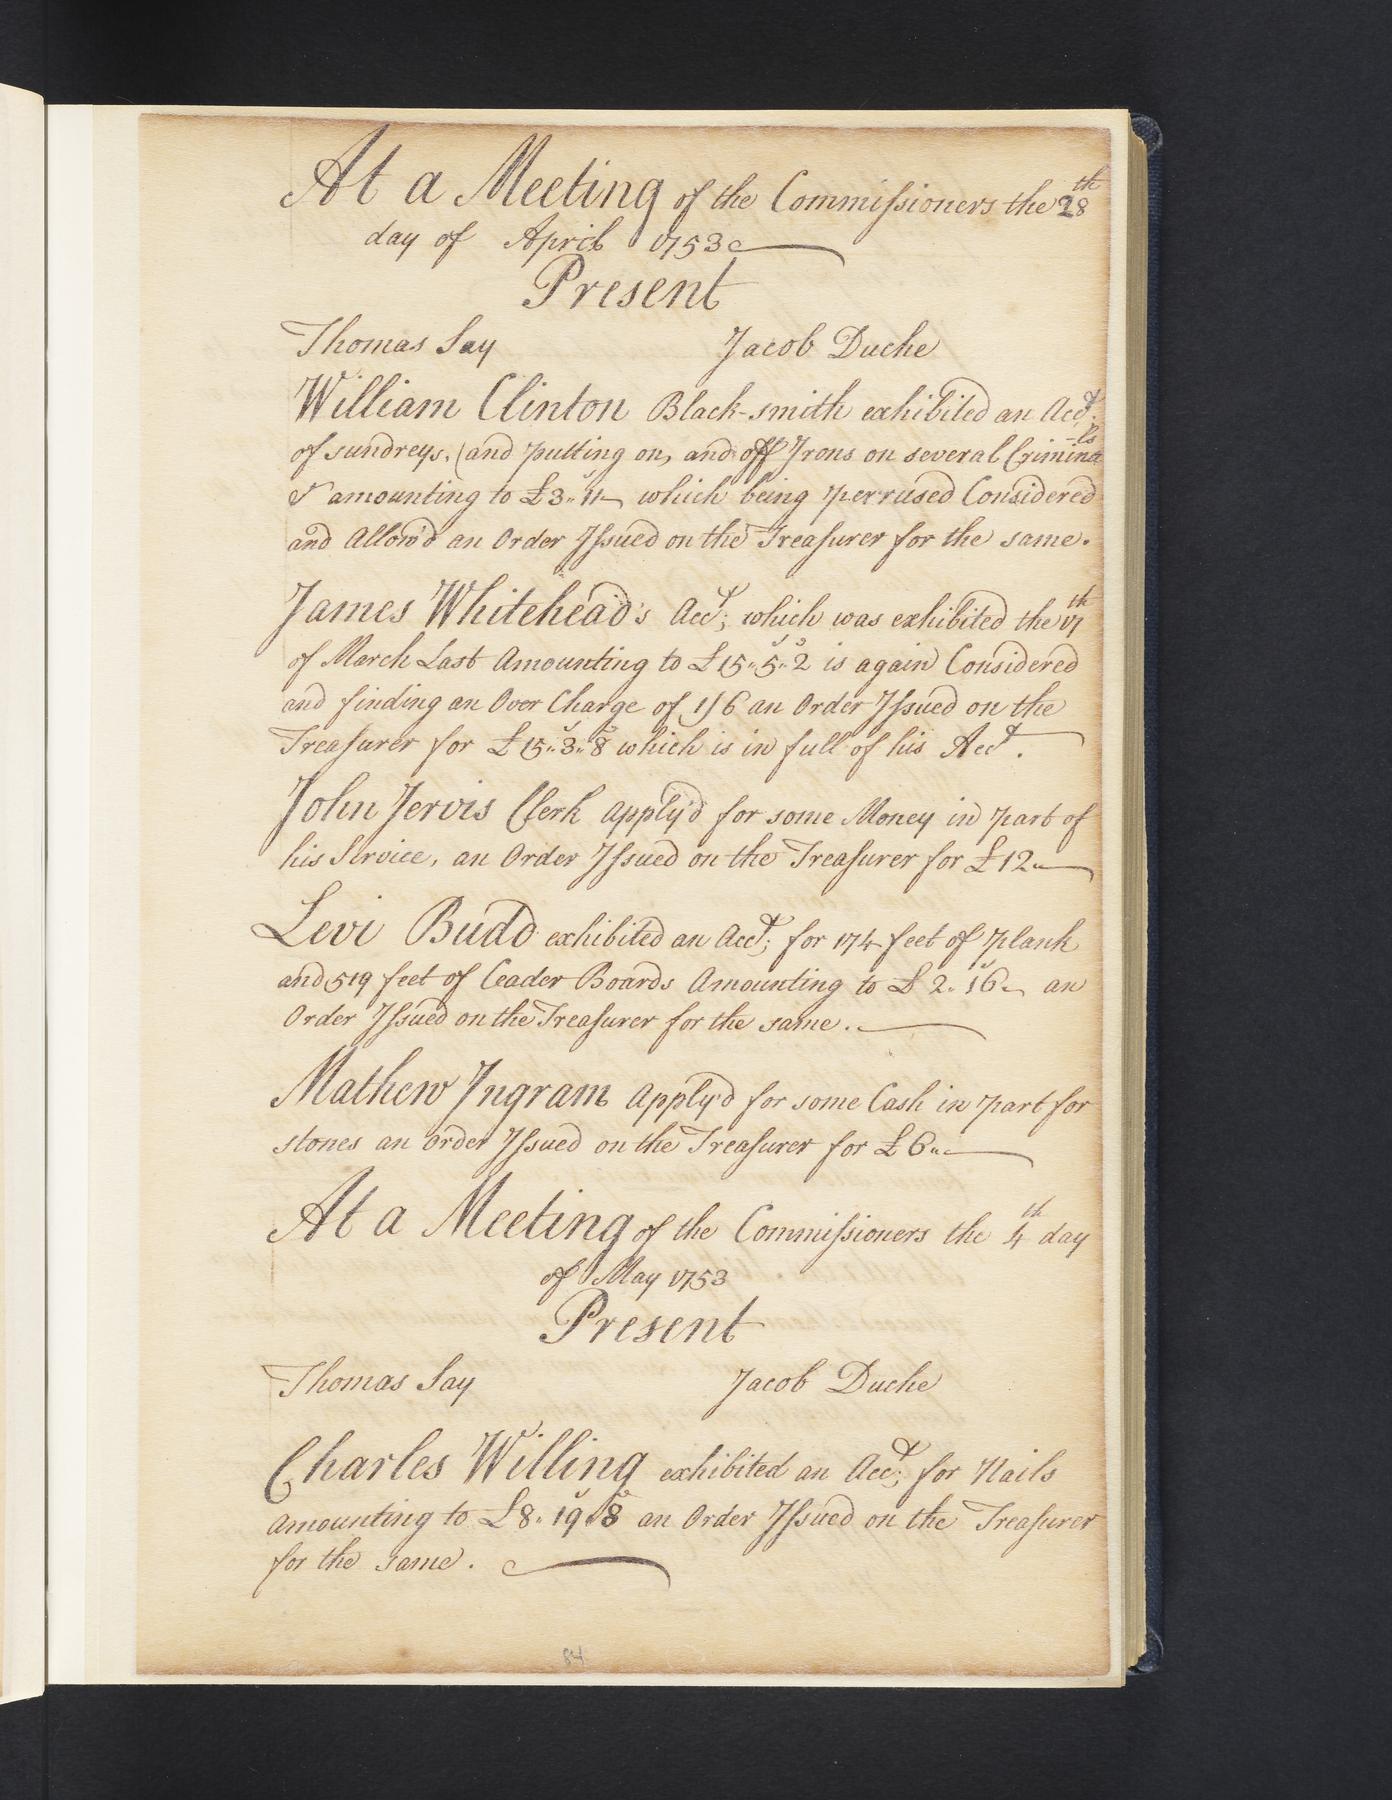 At a Meeting of the Commissioners the 28th
day of April 1753
Present
Thomas Say Jacob Duche
William Clinton Black-smith exhibited an Acct;
of sundreys, (and putting on, and off Irons on several Criminals
& amounting to £3..11 which being perrused Considered
and Allow'd an Order Issued on the Treasurer for the same.
James Whitehead's Acct; which was exhibited the 17th
of March Last Amounting to £15..5..2 is again Considered
and finding an Over Charge of 1/6 an Order Issued on the
Treasurer for £15..3..8 which is in full of his Acct.
John Jervis Clerk apply'd for some Money in part of
his Service, an Order Issued on the Treasurer for £12..
Levi Budd exhibited an Acct; for 174 feet of plank
and 519 feet of Ceader Boards Amounting to £2..16 an
Order Issued on the Treasurer for the same.
Mathew Ingram apply'd for some Cash in part for
stones an order Issued on the Treasurer for £6..
At a Meeting of the Commissioners the 4th day
of May 1753
Present
Thomas Say Jacob Duche
Charles Willing exhibited an Acct; for Nails
amounting to £8..19..8 an Order Issued on the Treasurer
for the same.
84